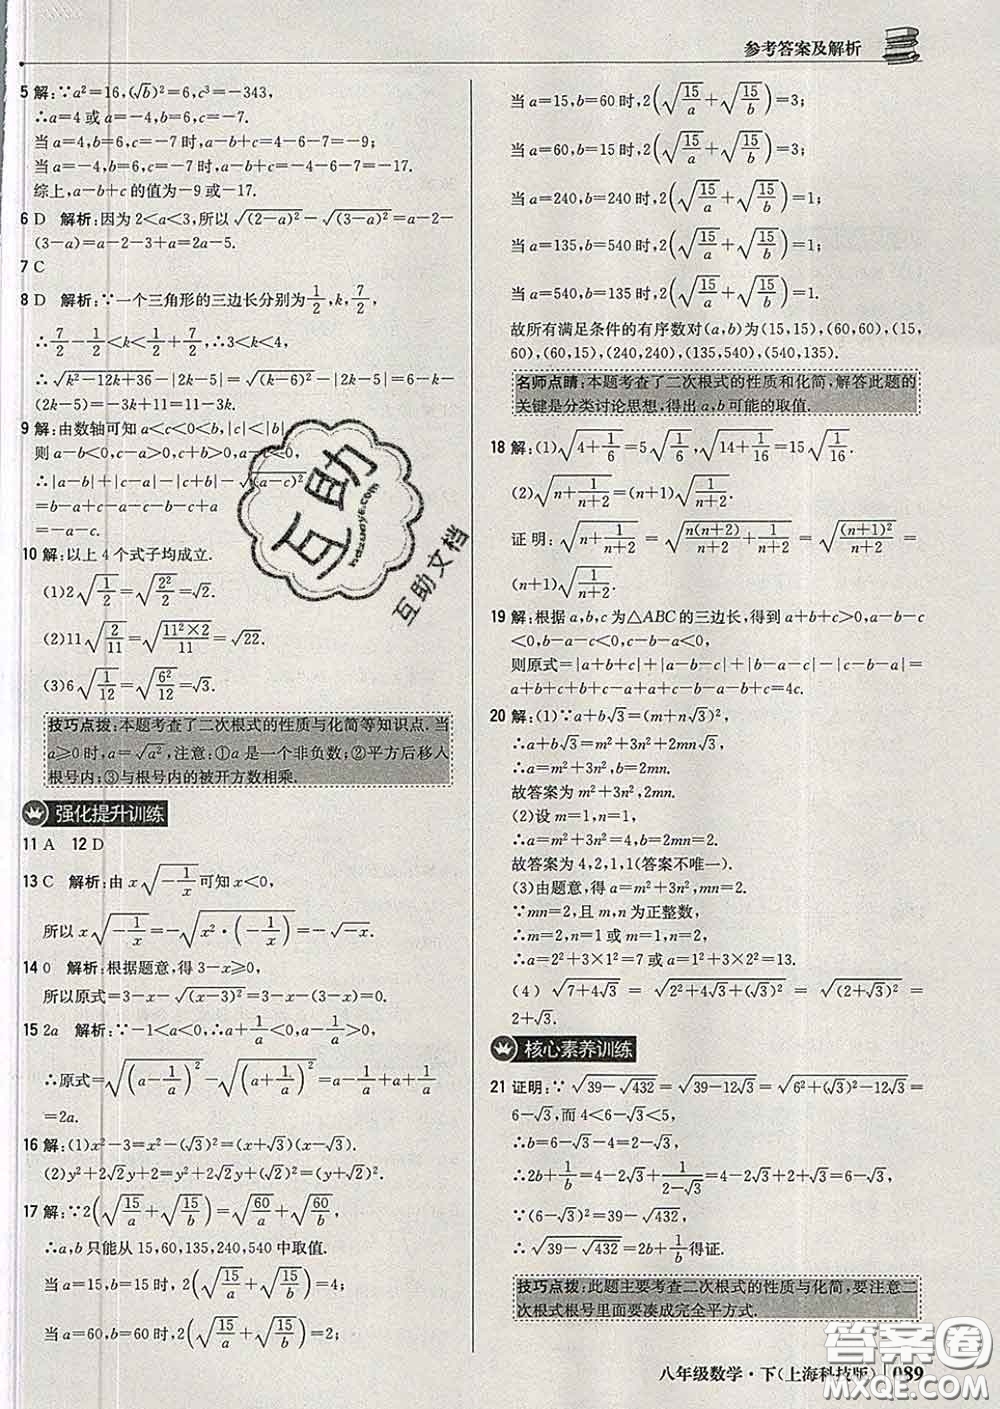 参考答案及解析
5 解:∵a²=16,(√b)²=6,c³=-343,
∴a=4或a=-4,b=6,c=-7.
当a=4,b=6,c=-7时,a-b+c=4-6-7=-9;
当a=-4,b=6,c=-7时,a-b+c=-4-6-7=-17.
综上,a-b+c的值为-9或-17.
6 D 解析:因为2<a<3,所以√(2-a)²-√(3-a)²=a-2-
(3-a)=a-2-3+a=2a-5.
7 C
8 D 解析:∵一个三角形的三边长分别为1/2,k,7/2,
∴7/2-1/2<k<1/2+7/2,∴3<k<4.
∴√(k²-12k+36)-|2k-5|=√(k-6)²-|2k-5|=6-k-
(2k-5)=-3k+11=11-3k.
9 解:由数轴可知a<c<0<b,|c|<|b|
则a-b<0,b-c>0,a-c<0,
∴|a-b|+|b-c|-√(a-c)²
=b-a+b-c-b-c+a
=-a-c.
10 解:以上4个式子均成立.
(1)2√(1/2)=√(2²/2)=√2.
(2)11√(2/11)=√(11²×2/11)=√22.
(3)6√(1/12)=√(6²/12)=√3.
技巧点拨:本题考查了二次根式的性质与化简等知识点.当
a≥0时,a=√a²,注意:①a是一个非负数;②平方后移入
根号内;③与根号内的被开方数相乘.
强化提升训练
11 A 12 D
13 C 解析:由x√(-1/x)可知x<0,
所以x√(-1/x)=-√(x²·(-1/x))=-√-x.
14 0 解析:根据题意,得3-x≥0,
所以原式=3-x-√(x-3)²=3-x-(3-x)=0.
15 2a 解析:∵-1<a<0,∴a+1/a<0,a-1/a>0,
∴原式=√(a-1/a)²-√(a+1/a)²=a-1/a+a+1/a
=2a.
16 解:(1)x²-3=x²-(√3)²=(x+√3)(x-√3).
(2)y²+2√2y+2=y²+2√2y+(√2)²=(y+√2)².
17 解:∵2(√(15/a)+√(15/b))=√(60/a)+√(60/b),
∴a,b只能从15,60,135,240,540中取值.
当a=15,b=15时,2(√(15/a)+√(15/b))=4;
当a=60,b=60时,2(√(15/a)+√(15/b))=2;
当a=15,b=60时,2(√(15/a)+√(15/b))=3;
当a=60,b=15时,2(√(15/a)+√(15/b))=3;
当a=240,b=240时,2(√(15/a)+√(15/b))=1;
当a=135,b=540时,2(√(15/a)+√(15/b))=1;
当a=540,b=135时,2(√(15/a)+√(15/b))=1;
故所有满足条件的有序数对(a,b)为(15,15),(60,60),(15,
60),(60,15),(240,240),(135,540),(540,135).
名师点睛:本题考查了二次根式的性质和化简,解答此题的
关键是分类讨论思想,得出a,b可能的取值.
18 解:(1)√(4+1/6)=5√(1/6),√(14+1/16)=15√(1/16).
(2)√(n+1/(n+2))=(n+1)√(1/(n+2)).
证明:√(n+1/(n+2))=√(n(n+2)/(n+2)+1/(n+2))=√((n+1)²/(n+2))=
(n+1)√(1/(n+2)).
19 解:根据a,b,c为△ABC的三边长,得到a+b+c>0,a-b-c
<0,b-a-c<0,c-b-a<0,
则原式=|a+b+c|+|a-b-c|+|b-a-c|-|c-b-a|=
a+b+c+b+c-a+a+c-b+c-a-b=4c.
20 解:(1)∵a+b√3=(m+n√3)²,
∴a+b√3=m²+3n²+2mn√3,
∴a=m²+3n²,b=2mn.
故答案为m²+3n²,2mn.
(2)设m=1,n=1,
∴a=m²+3n²=4,b=2mn=2.
故答案为4,2,1,1(答案不唯一).
(3)由题意,得a=m²+3n²,b=2mn=4.
∵mn=2,且m,n为正整数,
∴m=2,n=1或m=1,n=2,
∴a=2²+3×1²=7或a=1²+3×2²=13.
(4)√(7+4√3)=√(2²+4√3+(√3)²)=√(2+√3)²=
2+√3.
核心素养训练
21 证明:∵√(39-√432)=√(39-12√3)=√(6²+(√3)²-12√3)=
6-√3,而4<6-√3<5,
∴b=6-√3-4=2-√3.
∴2b+1/b=4-2√3+1/(2-√3)=4-2√3+2+√3=6-√3,
∵(6-√3)²=39-√432,
∴√(39-√432)=2b+1/b得证.
技巧点拨:此题主要考查二次根式的性质与化简,要注意二
次根式根号里面要凑成完全平方式.
八年级数学·下(上海科技版) 089
互助
互助文档
答案圈
MXQE.COM